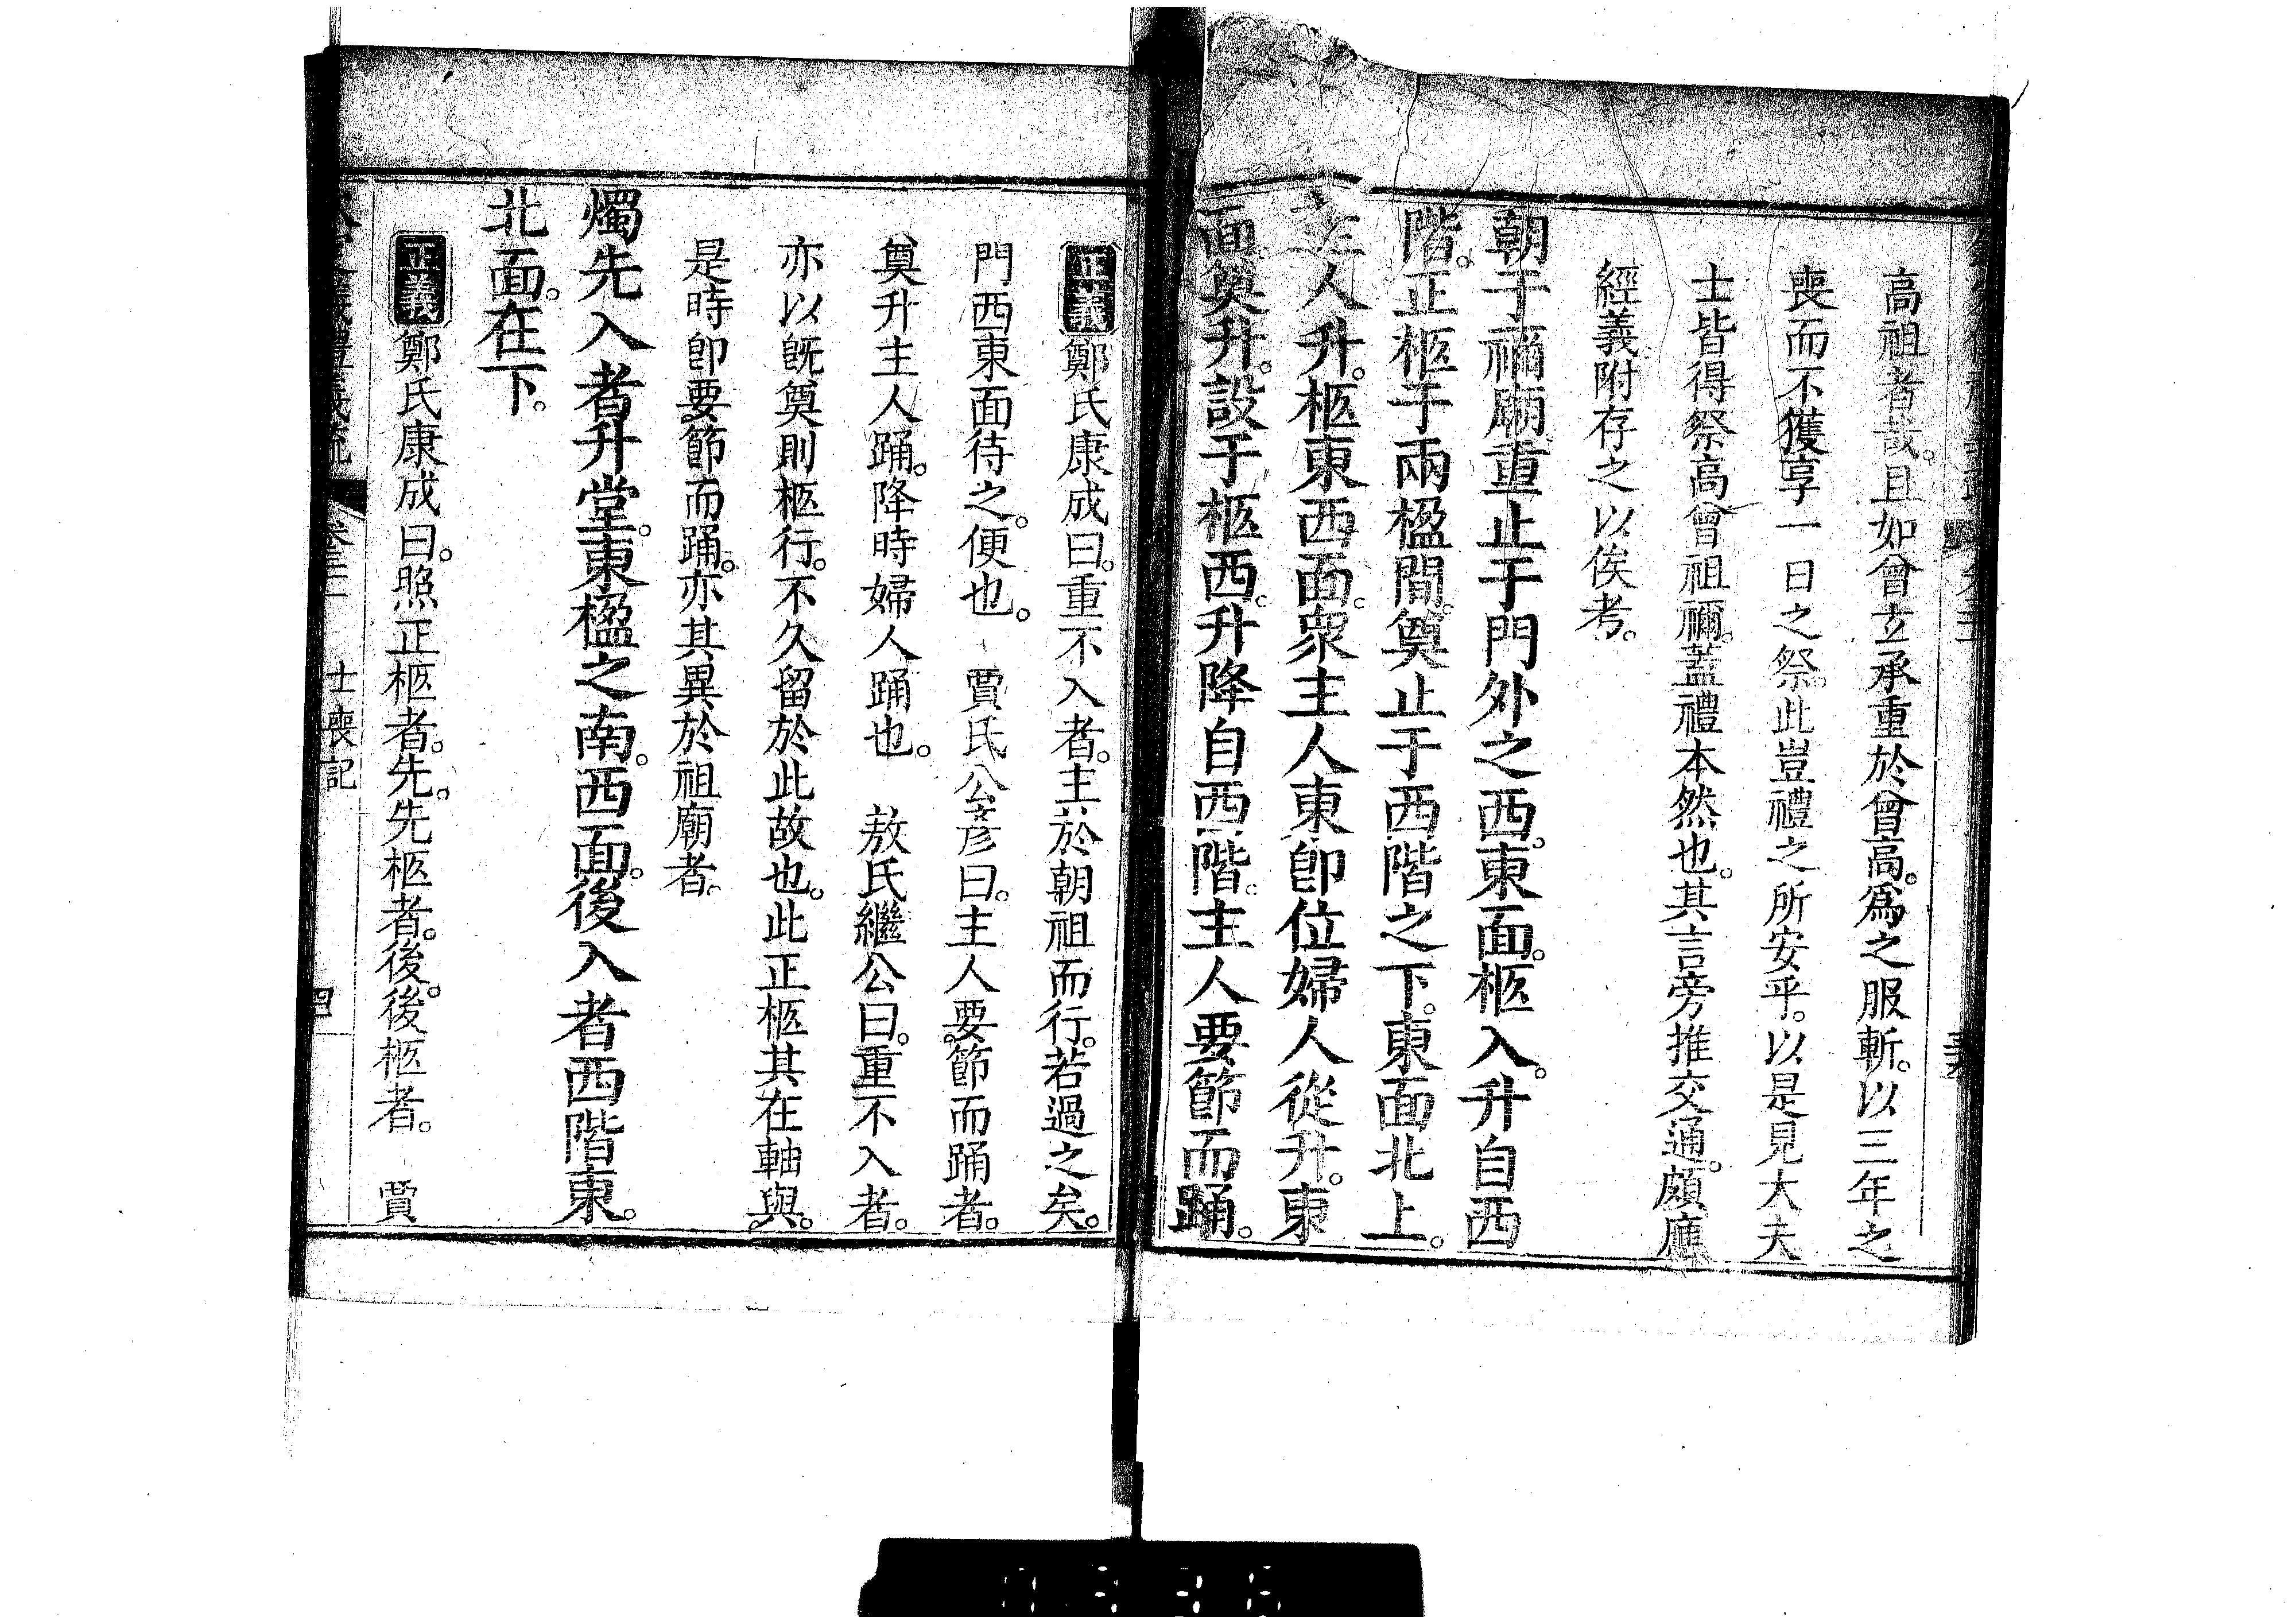 高祖者哉。且如曾玄承重於曾高。爲之服斬。以三年之
喪而不獲享一日之祭。此豈禮之所安乎。以是見大夫
士皆得祭高曾祖禰。蓋禮本然也。其言旁推交通。頗應
經義附存之以俟考。
朝于禰廟重止于門外之西。東面。柩入。升自西
階。正柩于兩楹間。奠止于西階之下。東面北上。
主人升。柩東西面。衆主人東即位婦人從升。東
面奠升。設于柩西。升降自西階。主人要節而踊。
正義鄭氏康成曰。重不入者。主於朝祖而行。若過之矣。
門西東面待之。便也。 賈氏公彥曰。主人要節而踊者。
奠升主人踊。降時婦人踊也。 敖氏繼公曰。重不入者。
亦以旣奠則柩行。不久留於此故也。此正柩其在軸與。
是時即要節而踊。亦其異於祖廟者。
燭先入者升堂。東楹之南。西面。後入者西階東。
北面。在下。
正義鄭氏康成曰。照正柩者。先。先柩者。後。後柩者。 賈
士喪記
四